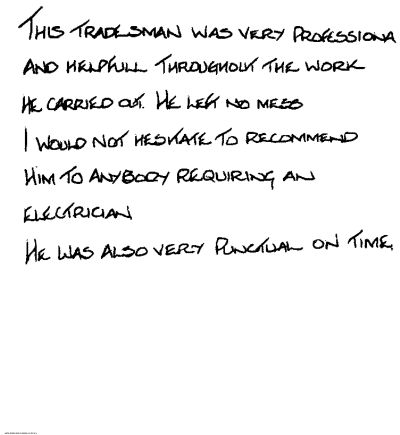 THIS TRADESMAN WAS VERY PROFESSIONA
AND HELPFULL THROUGHOUT THE WORK
HE CARRIED OUT. HE LEFT NO MESS
I WOULD NOT HESITATE TO RECOMMEND
HIM TO ANYBODY REQUIRING AN
ELECTRICIAN
HE WAS ALSO VERY PUNCTUAL ON TIME.